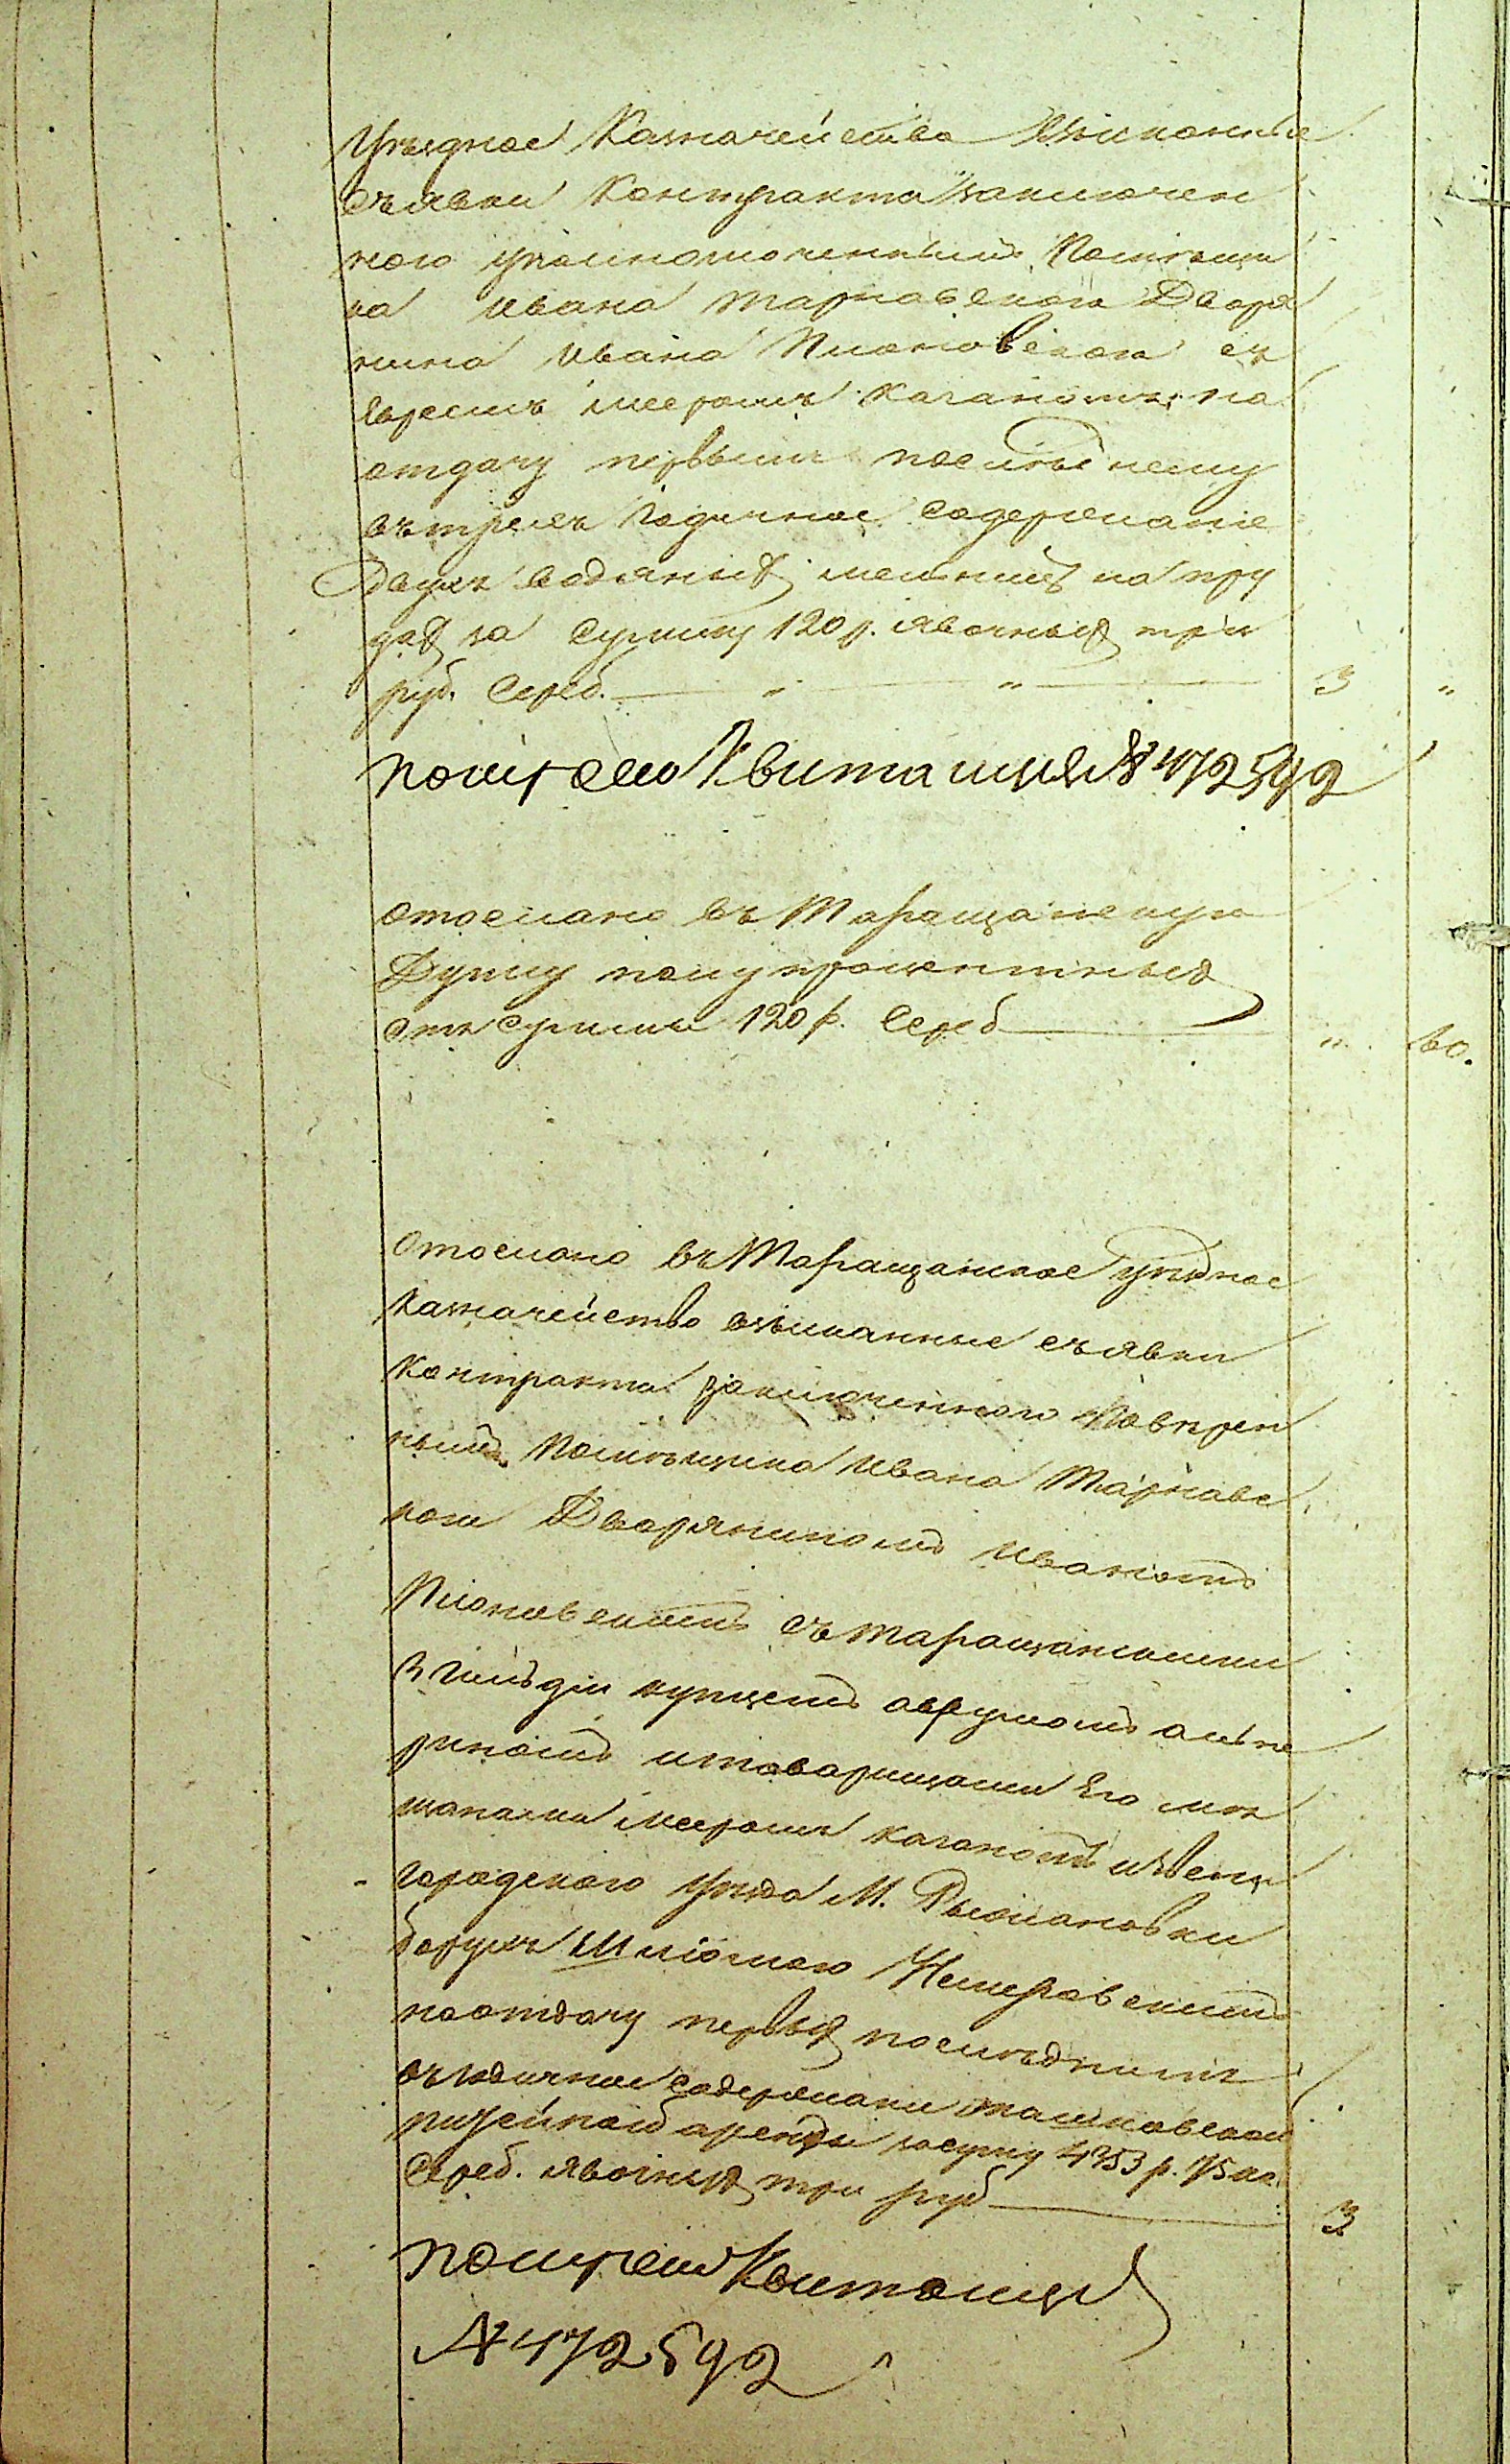 Уѣздное Казначейство взысканные
съ явки Контракта заключен
ного уполномоченнымъ Помѣщи
ка Ивана Тарновского Дворя
нина Ивана Пионовского съ
Евреемъ Мееромъ Каганомъ на
отдачу первымъ послѣднему
въ трехъ Годичное Содержание
Двухъ водяныхъ мельницъ на пру
дахъ за Сумму 120 р. явочныхъ три
руб. Сереб. — „ — „ — 3 „
получено Квитанция № 472592
отослано въ Таращанскую
Думу полупроцентныхъ
отъ Суммы 120 р. Сереб — „ 60.
Отослано въ Таращанское уѣздное
Казначейство взысканные съ явки
Контракта заключенного Повѣрен
нымъ Помѣщика Ивана Тарнавс
кого Дворяниномъ Иваномъ
Пионовскимъ съ Таращанскими
3 гильдіи купцемъ Аврумомъ
и товарищами Его мѣ
щанами Мееромъ Каганомъ и Звени
городского Уѣзда М. Рыжановки
Борухъ Шліомою Немировскимъ
на отдачу первыхъ послѣднимъ
въ годичное содержание
аренды за сумму 4353 р. 75 ко.
Сереб. явочныхъ три руб — 3
получено Квитанция
№ 472592